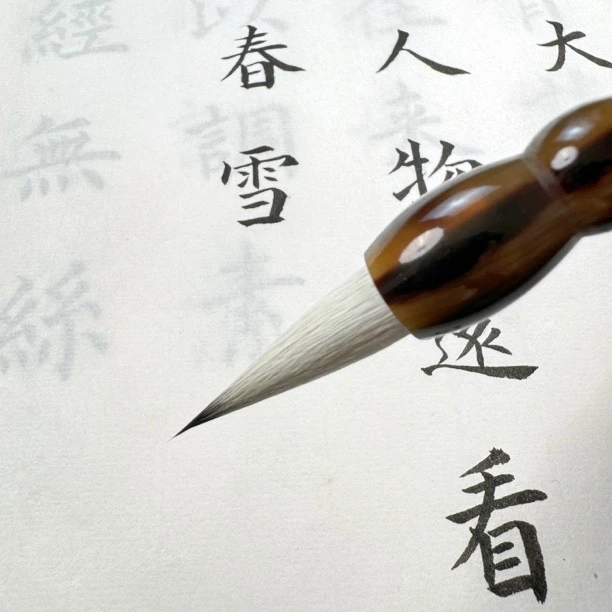 大
人物看
春雪
調素
經無絲